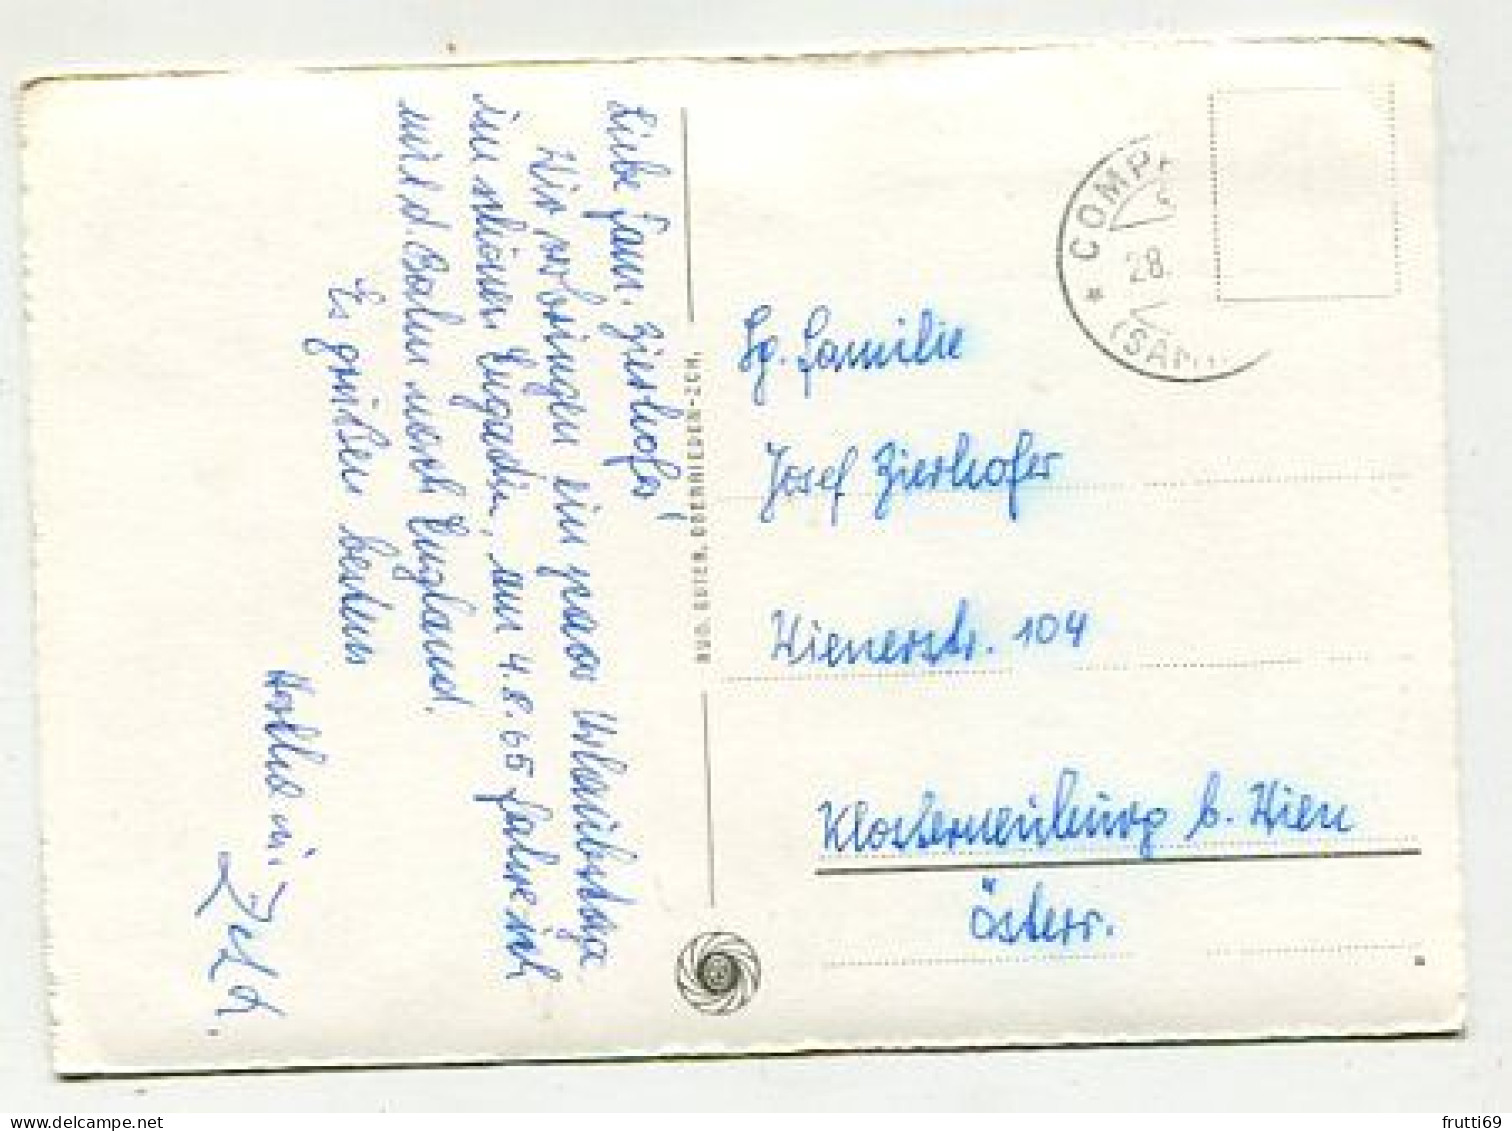 Liebe Fam. Zierhofer!
Wir verbringen ein paar Urlaubstage
im schönen Engadin, am 4.8.65 fahre ich
mit d. Bahn nach England.
Es grüßen bestens
m.
RUD. SUTER, OBERRIEDEN-ZCH.
COMP
28.
(SAM
Sg. Familie
Josef Zierhofer
Wienerstr. 104
Klosterneuburg b. Wien
Österr.
delcampe.net
frutti69